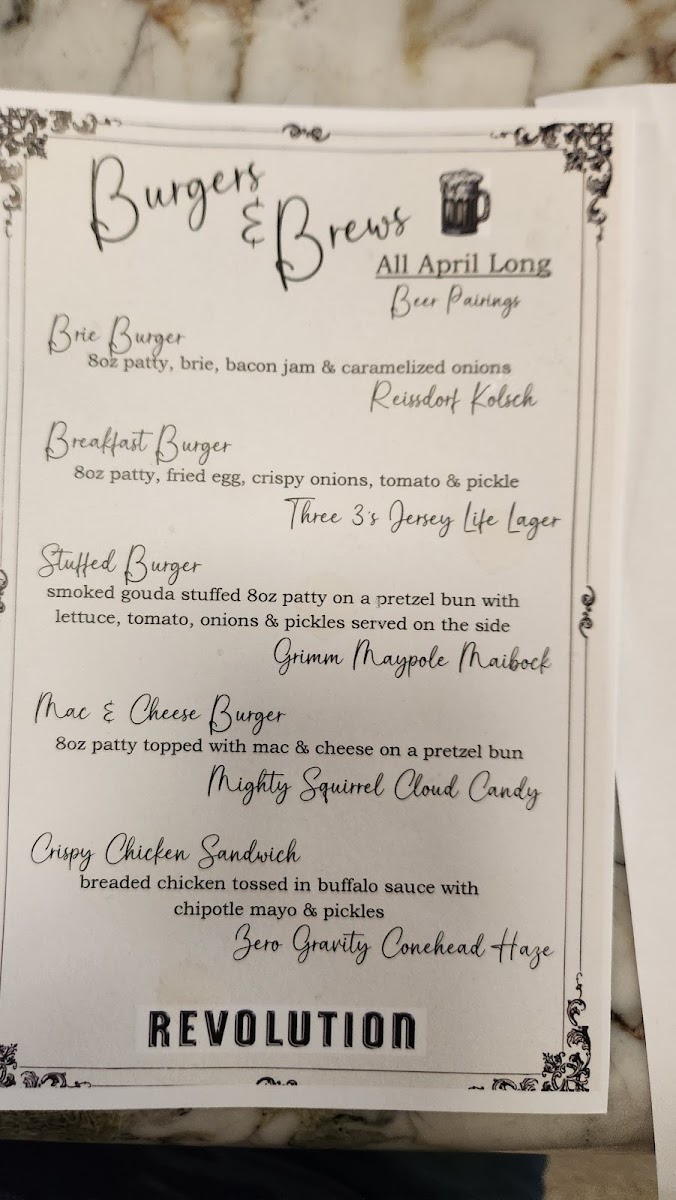 Burgers
& Brews
All April Long
Beer Pairings
Brie Burger
8oz patty, brie, bacon jam & caramelized onions
Reissdorf Kolsch
Breakfast Burger
8oz patty, fried egg, crispy onions, tomato & pickle
Three 3's Jersey Life Lager
Stuffed Burger
smoked gouda stuffed 8oz patty on a pretzel bun with
lettuce, tomato, onions & pickles served on the side
Grimm Maypole Maibock
Mac & Cheese Burger
8oz patty topped with mac & cheese on a pretzel bun
Mighty Squirrel Cloud Candy
Crispy Chicken Sandwich
breaded chicken tossed in buffalo sauce with
chipotle mayo & pickles
Zero Gravity Conehead Haze
REVOLUTION